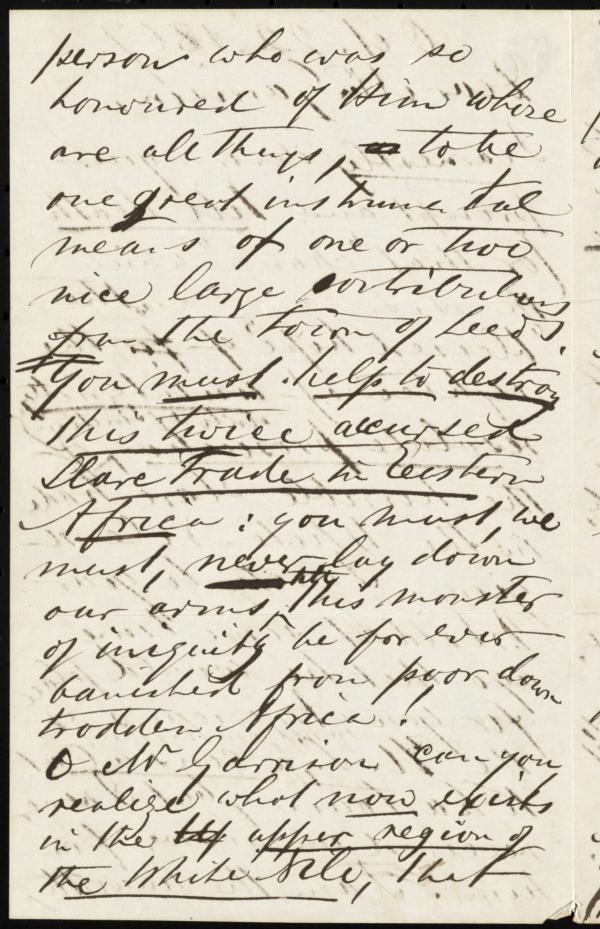 person who was so
honoured of Him whose
are all things, to be
one great instrumental
means of one or two
nice large contributions
from the town of Leeds.
You must help to destroy
this twice accursed
Slave Trade in Eastern
Africa: you must, we
must, never lay down
our arms, till this monster
of iniquity be for ever
banished from poor down
trodden Africa!
O Mr Garrison can you
realize what now exists
in the upper region of
the White Nile, that